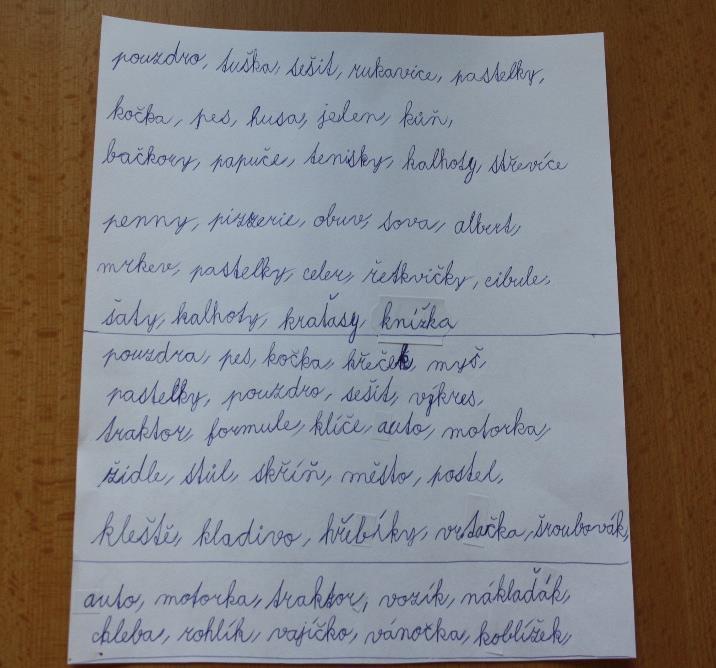 pouzdro, tuška, sešit, rukavice, pastelky,
kočka, pes, husa, jeden, kůň,
bačkory, papuče, tenisky, kalhoty, střevíce
penny, pizzerie, obuv, sova, albert,
mrkev, pastelky, celer, ředkvičky, cibule,
šaty, kalhoty, kraťasy knížka
pouzdra, pes, kočka, křeček, myš,
pastelky, pouzdro, sešit, výkres,
traktor, formule, klíče, auto, motorka,
židle, stůl, skříň, město, postel,
kleště, kladivo, hřebíky, vrtačka, šroubovák,
auto, motorka, traktor, vozík, náklaďák,
chleba, rohlík, vajíčko, vánočka, koblížek,